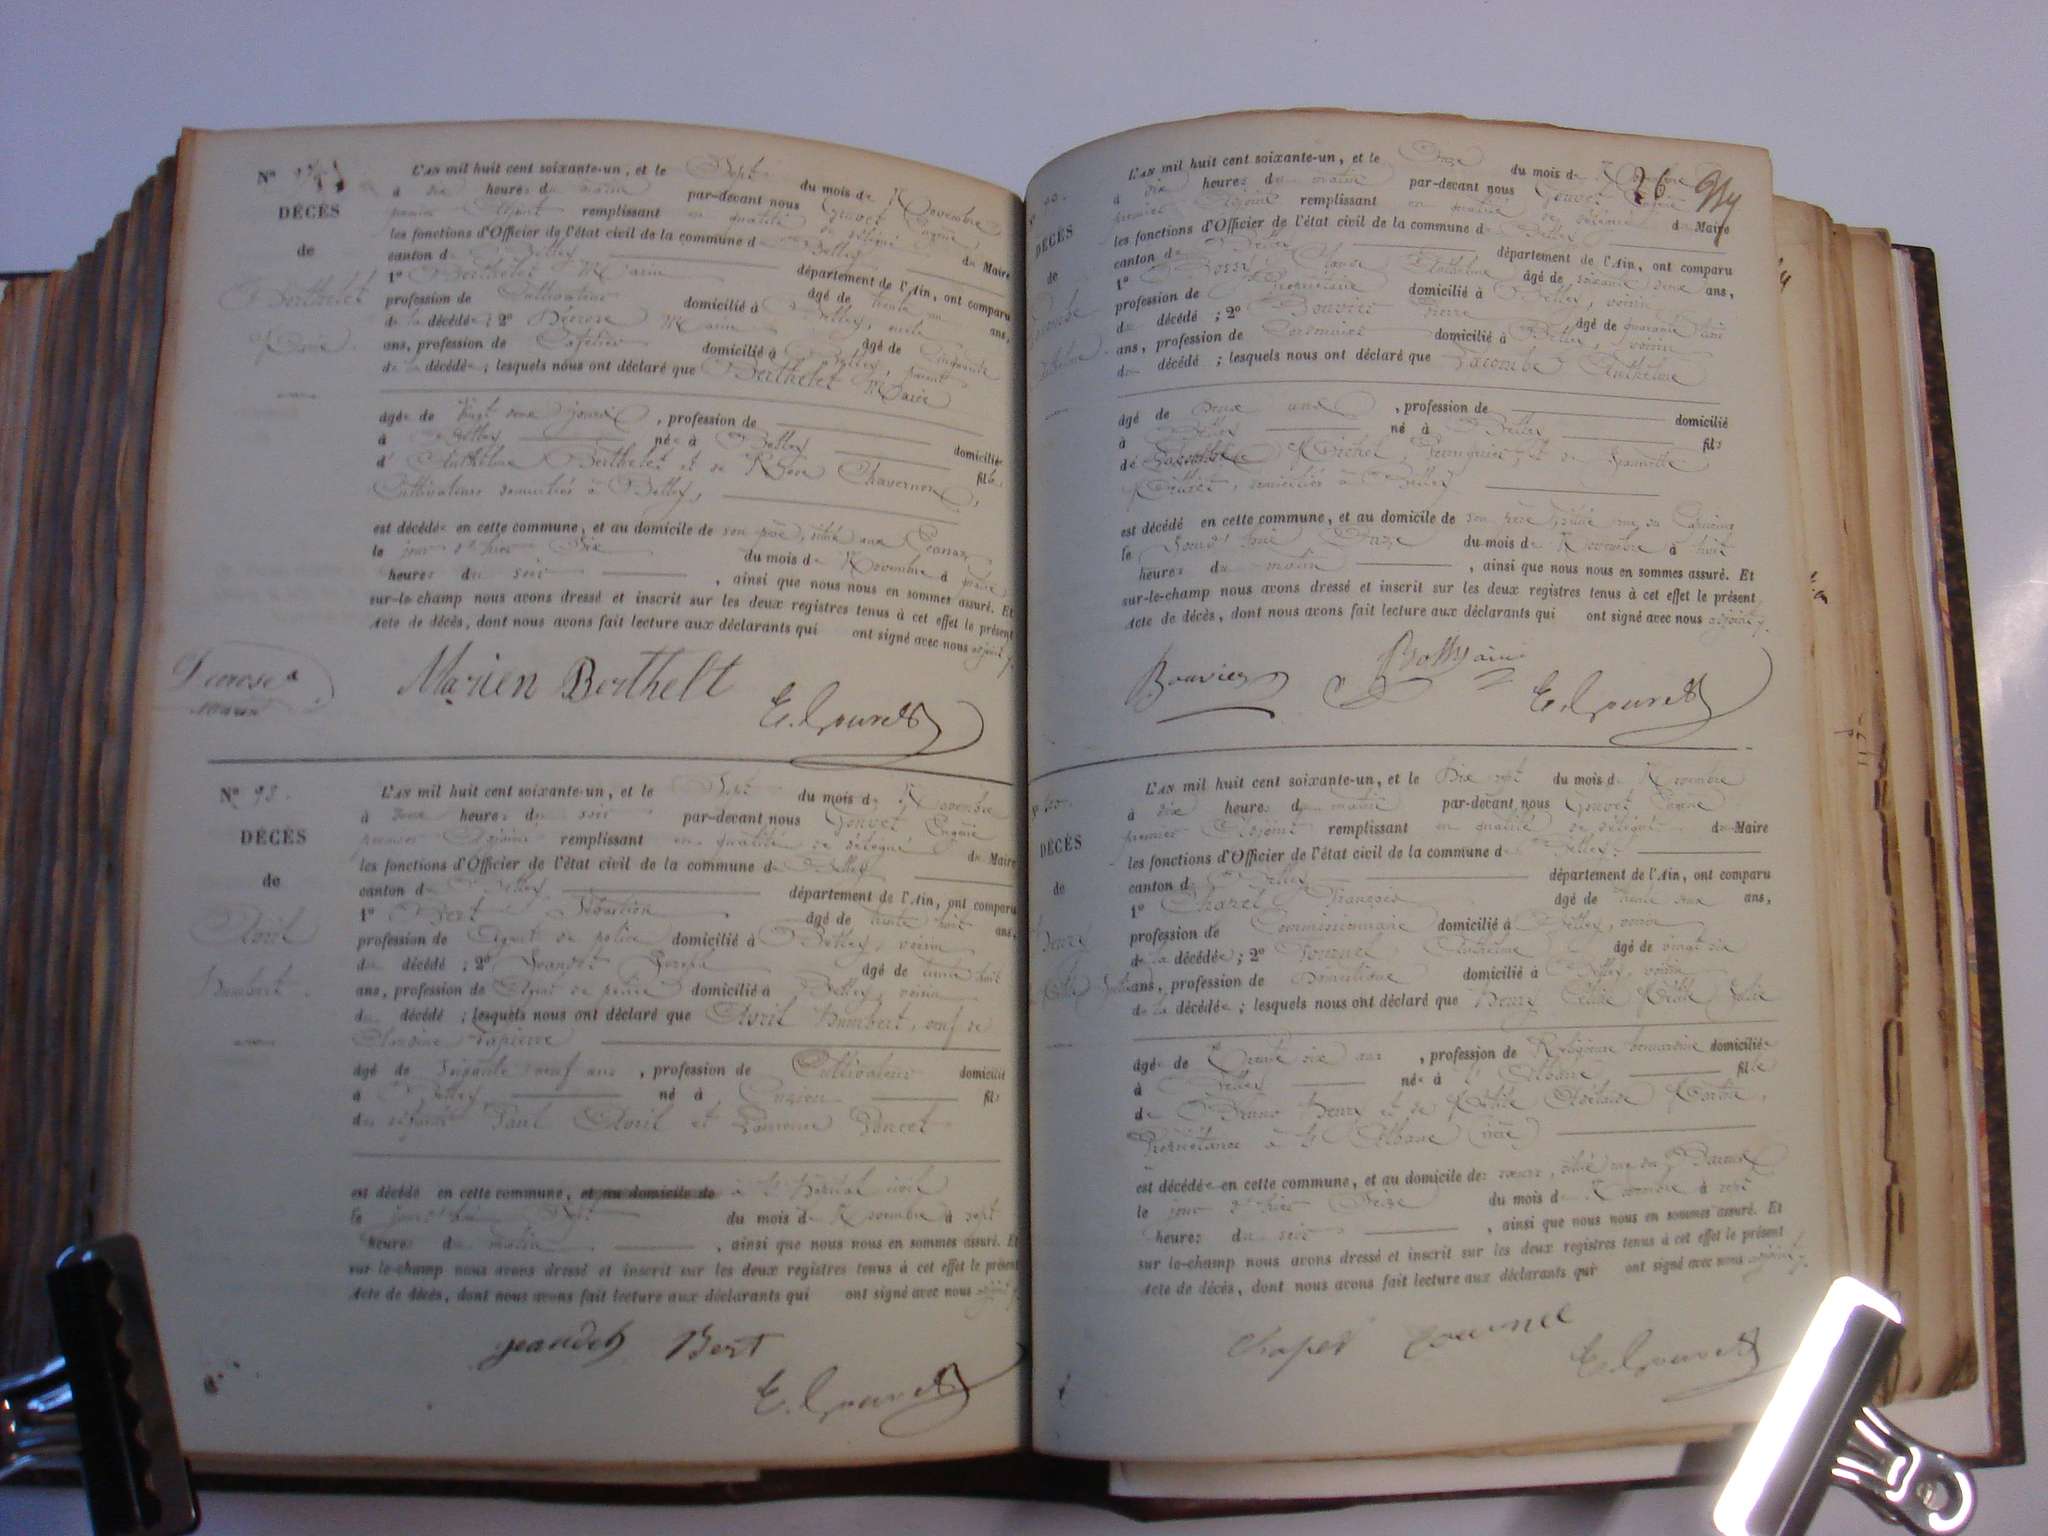 N°
DÉCÈS
de
Berthelet
Marie
L'AN mil huit cent soixante-un, et le Sept du mois de Novembre
à dix heures du matin par-devant nous Gouvet Eugène
premier Adjoint remplissant en qualité de délégué du Maire
les fonctions d'Officier de l'état civil de la commune de Belley
canton de Belley département de l'Ain, ont comparu
1° Berthelet Marin âgé de trente un ans,
profession de Cultivateur domicilié à Belley, oncle
de la décédée ; 2° Décrose Marin âgé de Cinquante
ans, profession de Cafetier domicilié à Belley, parent
de la décédée ; lesquels nous ont déclaré que Berthelet Marie
âgée de Vingt deux jours, profession de domiciliée
à Belley née à Belley fille
d'Anthelme Berthelet et de Chavernon,
Cultivateurs domiciliés à Belley,
est décédée en cette commune, et au domicile de son père, situé aux
le jour d'hier Six du mois de Novembre à
heures du soir, ainsi que nous nous en sommes assuré. Et
sur-le-champ nous avons dressé et inscrit sur les deux registres tenus à cet effet le présent
Acte de décès, dont nous avons fait lecture aux déclarants qui ont signé avec nous adjoint
Decrose
Marin
Marien Berthelt
E. Gouvet
N° 98.
DÉCÈS
de
Avril
Humbert
L'AN mil huit cent soixante-un, et le Sept du mois de Novembre
à heures du soir par-devant nous Gouvet Eugène
premier Adjoint remplissant en qualité de délégué du Maire
les fonctions d'Officier de l'état civil de la commune de Belley
canton de Belley département de l'Ain, ont comparu
1° Bert Sébastien âgé de trente huit ans,
profession de Agent de police domicilié à Belley, voisin
du décédé ; 2° Jeandet Joseph âgé de trente huit
ans, profession de Agent de police domicilié à Belley, voisin
du décédé ; lesquels nous ont déclaré que Avril Humbert, veuf de
Claudine Lapierre
âgé de Soixante neuf ans, profession de Cultivateur domicilié
à Belley né à Cuzieu fils
des défunts Paul Avril et Poncet
est décédé en cette commune, et au domicile de à l'Hôpital civil
le jourd'hui Sept du mois de Novembre à sept
heures du matin, ainsi que nous nous en sommes assuré. Et
sur-le-champ nous avons dressé et inscrit sur les deux registres tenus à cet effet le présent
Acte de décès, dont nous avons fait lecture aux déclarants qui ont signé avec nous adjoint
jeandet Bert
E. Gouvet
26
DÉCÈS
de
L'AN mil huit cent soixante-un, et le Onze du mois de Novembre
à dix heures du matin par-devant nous Gouvet Eugène
premier Adjoint remplissant en qualité de délégué du Maire
les fonctions d'Officier de l'état civil de la commune de Belley
canton de Belley département de l'Ain, ont comparu
1° Anthelme âgé de soixante deux ans,
profession de Propriétaire domicilié à Belley, voisin
du décédé ; 2° Bouvier Pierre âgé de quarante
ans, profession de Cordonnier domicilié à Belley, voisin
du décédé ; lesquels nous ont déclaré que Lacombe Anthelme
âgé de Deux ans, profession de domicilié
à Belley né à Belley fils
de Lacombe Michel, et de
domiciliés à Belley
est décédé en cette commune, et au domicile de son père, situé rue
le Jourd'hui Onze du mois de Novembre à huit
heures du matin, ainsi que nous nous en sommes assuré. Et
sur-le-champ nous avons dressé et inscrit sur les deux registres tenus à cet effet le présent
Acte de décès, dont nous avons fait lecture aux déclarants qui ont signé avec nous adjoint
Bouvier
E. Gouvet
DÉCÈS
de
Henry
L'AN mil huit cent soixante-un, et le Dix sept du mois de Novembre
à dix heures du matin par-devant nous Gouvet Eugène
premier Adjoint remplissant en qualité de délégué du Maire
les fonctions d'Officier de l'état civil de la commune de Belley
canton de Belley département de l'Ain, ont comparu
1° Chapet François âgé de trente ans,
profession de Commissionnaire domicilié à Belley, voisin
de la décédée ; 2° Tournel Anthelme âgé de vingt six
ans, profession de Domestique domicilié à Belley, voisin
de la décédée ; lesquels nous ont déclaré que Henry Julie
âgée de Trente six ans, profession de Religieuse bernardine domiciliée
à Belley née à l'Albane fille
de Bruno Henry et de Adélaïde
Propriétaires à l'Albane
est décédée en cette commune, et au domicile des sœurs, situé rue des Barons
le jour d'hier Seize du mois de Novembre à sept
heures du soir, ainsi que nous nous en sommes assuré. Et
sur le-champ nous avons dressé et inscrit sur les deux registres tenus à cet effet le présent
Acte de décès, dont nous avons fait lecture aux déclarants qui ont signé avec nous adjoint
Chapet Tournel
E. Gouvet